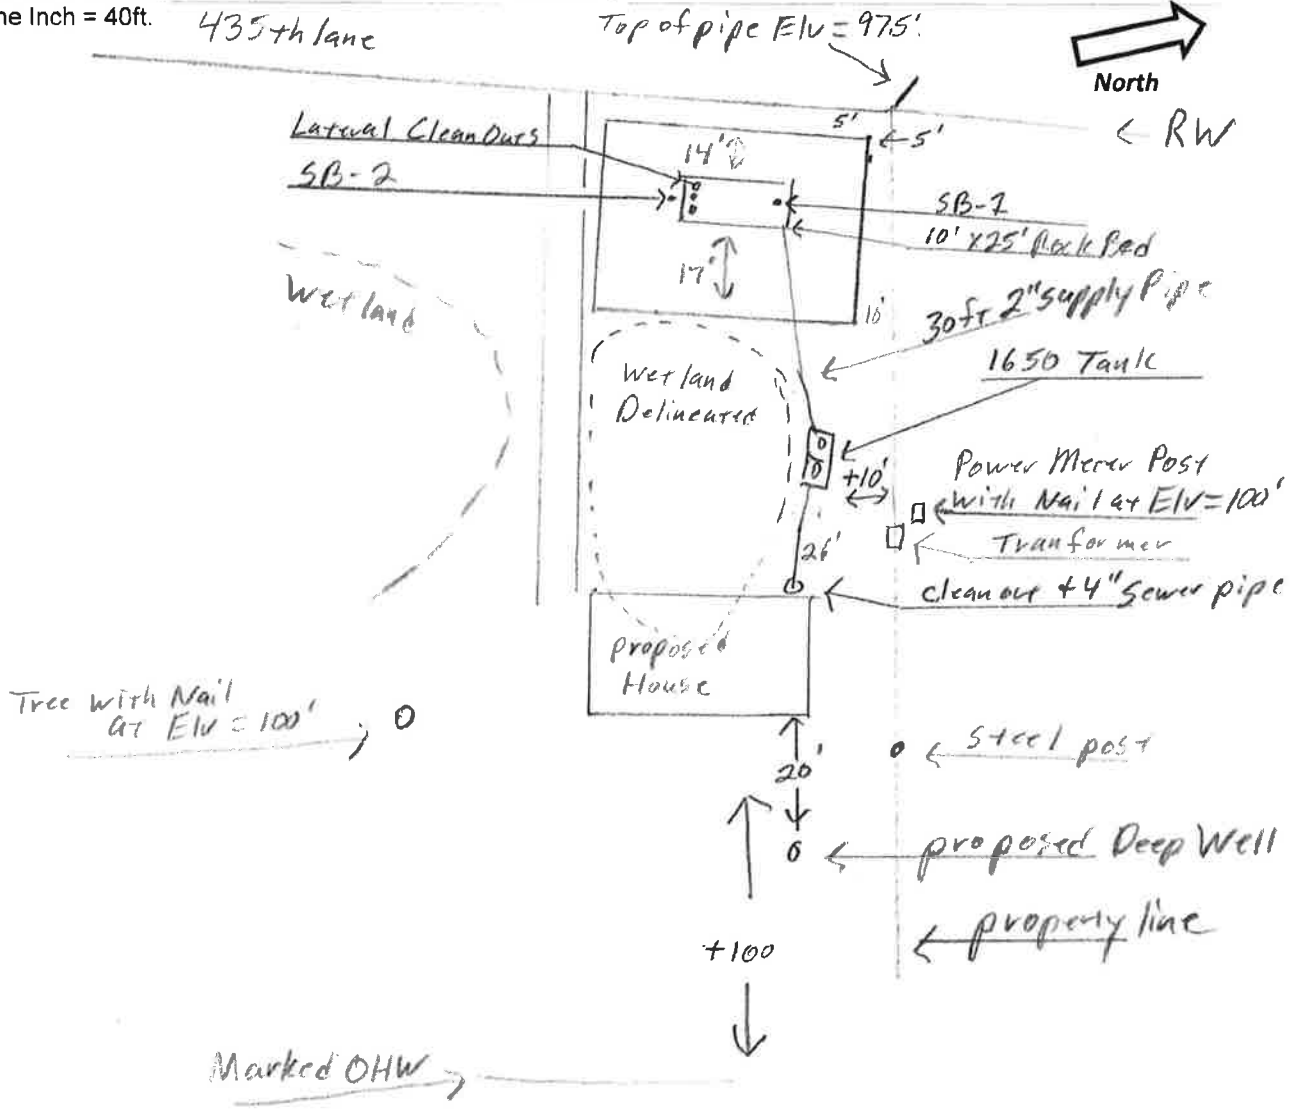 ne Inch = 40ft.
435th lane
Top of pipe Elv = 97.5'
North
← RW
5'
←5'
Lateral CleanOuts
14'
SB-2
SB-1
10' x25' Rock Bed
17'
10'
30ft 2" supply Pipe
Wetland
Wetland
Delineated
1650 Tank
+10'
Power Meter Post
with Nail at Elv=100'
Tranformer
26'
cleanout + 4" sewer pipe
proposed
House
Tree with Nail
at Elv = 100'
Steel post
20'
proposed Deep Well
property line
+100
Marked OHW